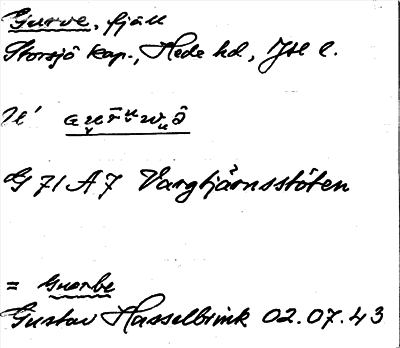 Gurve, fjäll
Storsjö kap., Hede hd, Jtl l.
G 71 A 7 Vargtjärnsstöten
= Guerbe
Gustav Hasselbrink 02.07.43